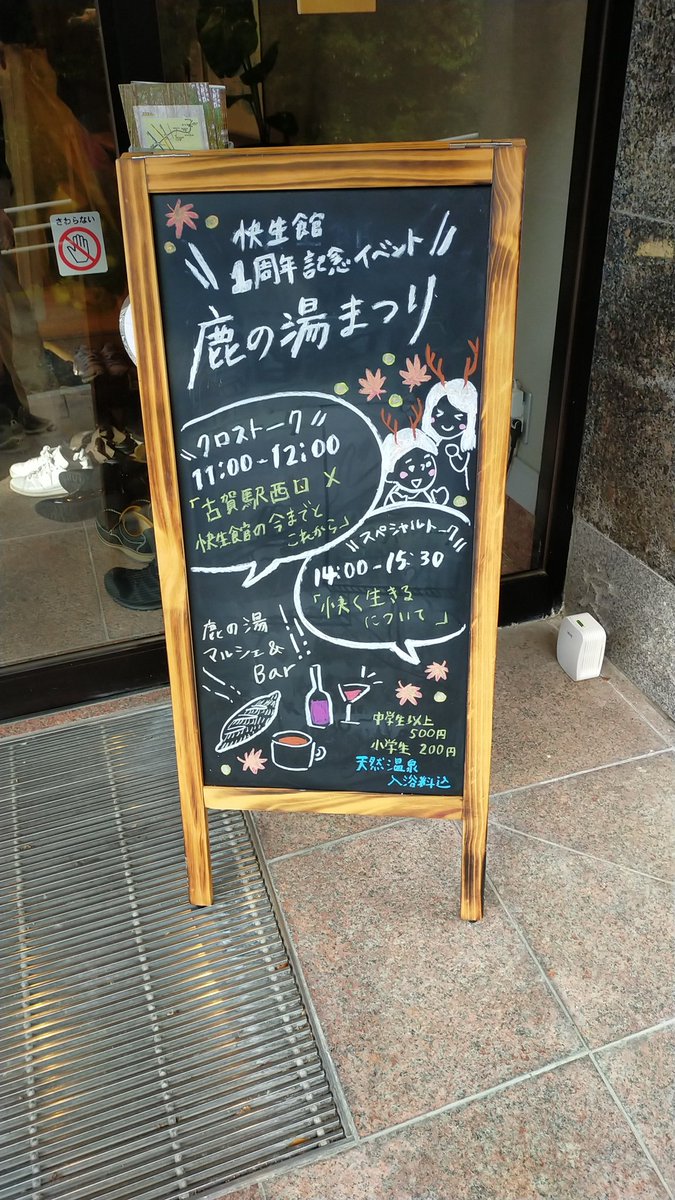 さわらない
快生館
1周年記念イベント
鹿の湯まつり
クロストーク
11:00-12:00
「古賀駅西口×
快生館の今までと
これから」
スペシャルトーク
14:00-15:30
「快く生きる
について」
鹿の湯
マルシェ&
Bar
中学生以上
500円
小学生 200円
天然温泉
入浴料込